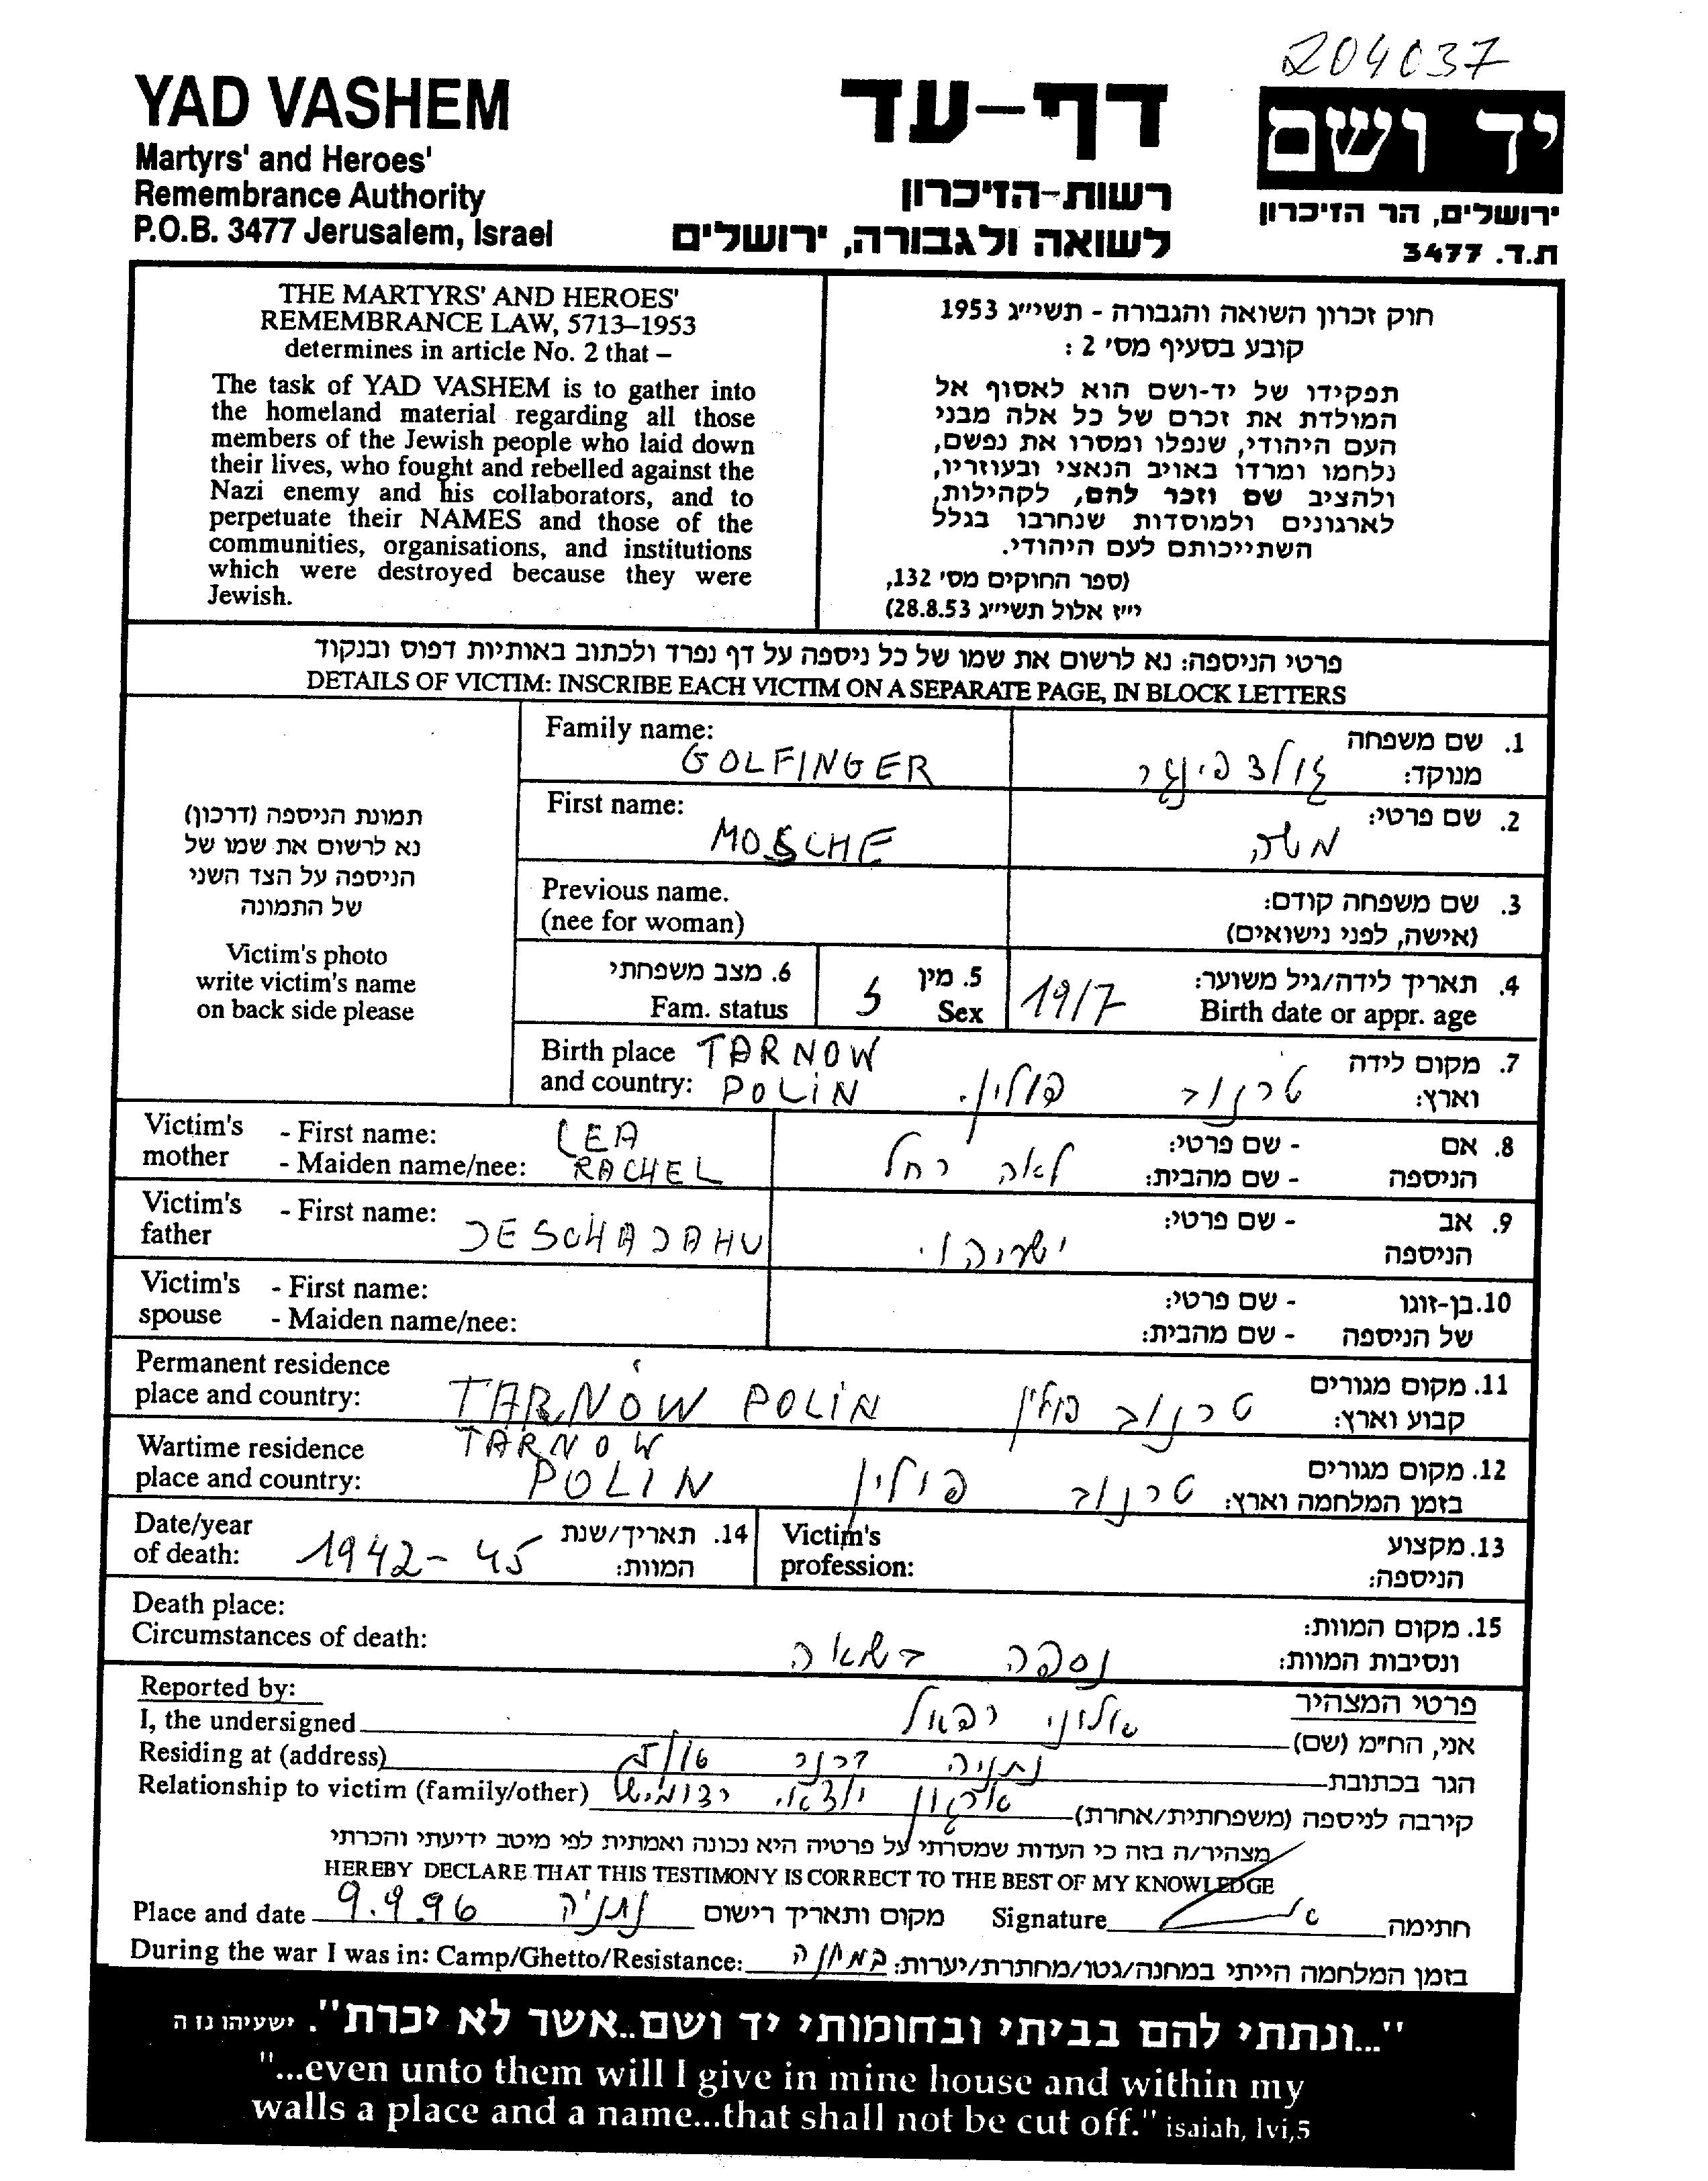 204037
YAD VASHEM
Martyrs' and Heroes'
Remembrance Authority
P.O.B. 3477 Jerusalem, Israel
דף-עד
רשות-הזיכרון
לשואה ולגבורה, ירושלים
יד ושם
ירושלים, הר הזיכרון
ת.ד. 3477
THE MARTYRS' AND HEROES'
REMEMBRANCE LAW, 5713–1953
determines in article No. 2 that –
The task of YAD VASHEM is to gather into
the homeland material regarding all those
members of the Jewish people who laid down
their lives, who fought and rebelled against the
Nazi enemy and his collaborators, and to
perpetuate their NAMES and those of the
communities, organisations, and institutions
which were destroyed because they were
Jewish.
חוק זכרון השואה והגבורה - תשי״ג 1953
קובע בסעיף מס' 2 :
תפקידו של יד-ושם הוא לאסוף אל
המולדת את זכרם של כל אלה מבני
העם היהודי, שנפלו ומסרו את נפשם,
נלחמו ומרדו באויב הנאצי ובעוזריו,
ולהציב שם וזכר להם, לקהילות,
לארגונים ולמוסדות שנחרבו בגלל
השתייכותם לעם היהודי.
(ספר החוקים מס' 132,
י״ז אלול תשי״ג 28.8.53)
פרטי הניספה: נא לרשום את שמו של כל ניספה על דף נפרד ולכתוב באותיות דפוס ובנקוד
DETAILS OF VICTIM: INSCRIBE EACH VICTIM ON A SEPARATE PAGE, IN BLOCK LETTERS
תמונת הניספה (דרכון)
נא לרשום את שמו של
הניספה על הצד השני
של התמונה
Victim's photo
write victim's name
on back side please
Family name: GOLFINGER
1. שם משפחה
מנוקד: גולדפינגר
First name: MOSCHE
2. שם פרטי: משה
Previous name.
(nee for woman)
3. שם משפחה קודם:
(אישה, לפני נישואים)
4. תאריך לידה/גיל משוער:
Birth date or appr. age 1917
5. מין
Sex
6. מצב משפחתי
Fam. status
Birth place TARNOW
and country: POLIN
7. מקום לידה
וארץ: טרנוב פולין.
Victim's mother - First name: LEA
- Maiden name/nee: RACHEL
8. אם - שם פרטי:
הניספה - שם מהבית: לאה רחל
Victim's father - First name: JESCHAJAHU
9. אב - שם פרטי:
הניספה ישעיהו.
Victim's - First name:
spouse - Maiden name/nee:
10. בן-זוגו - שם פרטי:
של הניספה - שם מהבית:
Permanent residence
place and country: TARNÓW POLIN
11. מקום מגורים
קבוע וארץ: טרנוב פולין
Wartime residence TARNOW
place and country: POLIN
12. מקום מגורים
בזמן המלחמה וארץ: טרנוב פולין
Date/year
of death: 1942 - 45
14. תאריך/שנת
המוות:
Victim's
profession:
13. מקצוע
הניספה:
Death place:
Circumstances of death:
15. מקום המוות:
ונסיבות המוות: נספה בשואה
Reported by:
פרטי המצהיר
I, the undersigned
אני, הח״מ (שם) אלוני רפאל
Residing at (address)
הגר בכתובת נתניה
Relationship to victim (family/other)
קירבה לניספה (משפחתית/אחרת) ארגון יוצאי
מצהיר/ה בזה כי העדות שמסרתי על פרטיה היא נכונה ואמתית לפי מיטב ידיעתי והכרתי
HEREBY DECLARE THAT THIS TESTIMONY IS CORRECT TO THE BEST OF MY KNOWLEDGE
Place and date 9.9.96 נתניה מקום ותאריך רישום Signature חתימה
During the war I was in: Camp/Ghetto/Resistance: במחנה בזמן המלחמה הייתי במחנה/גטו/מחתרת/יערות:
"...ונתתי להם בביתי ובחומותי יד ושם..אשר לא יכרת". ישעיהו נו ה
"...even unto them will I give in mine house and within my
walls a place and a name...that shall not be cut off." isaiah, lvi,5